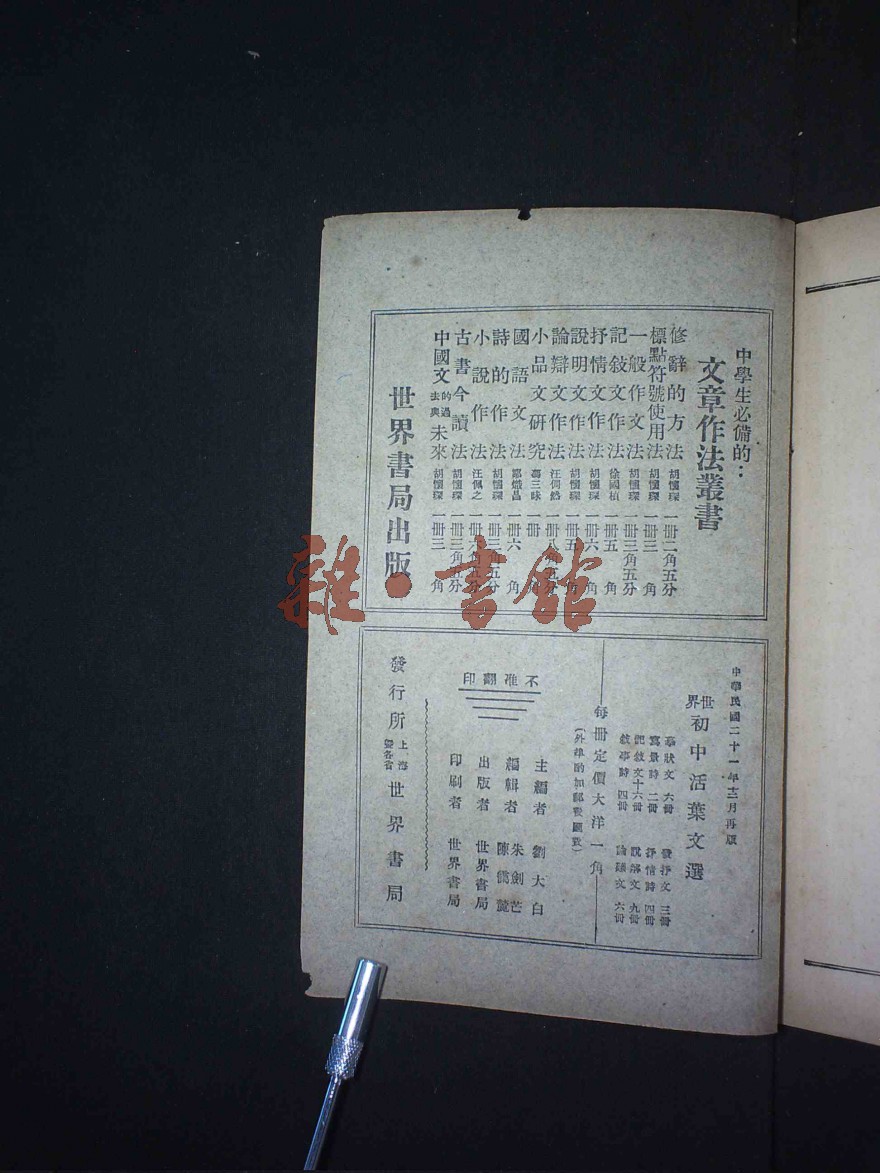 中學生必備的：
文章作法叢書
修辭的方法 胡懷琛 一冊二角五分
標點符號使用法 胡懷琛 一冊三角
一般作文法 胡懷琛 一冊三角五分
記敍文作法 徐國楨 一冊五角
抒情文作法 胡懷琛 一冊六角
說明文作法 胡懷琛 一冊五角
論辯文作法 汪倜然 一冊八角五分
小品文研究 馮三昧 一冊 角
國語文法 鄒熾昌 一冊六角
詩的作法 胡懷琛 一冊三角五分
小說作法 汪佩之 一冊六角五分
古書今讀法 胡懷琛 一冊三角五分
中國文的過去與未來 胡懷琛 一冊三角
世界書局出版
中華民國二十一年十二月再版
世界初中活葉文選
摹狀文 六冊 發抒文 三冊
寫景詩 二冊 抒情詩 四冊
記敍文十六冊 說解文 九冊
敍事詩 四冊 論議文 六冊
每冊定價大洋一角
(外埠酌加郵費匯費)
不准翻印
主編者 劉大白
編輯者 朱劍芒 陳靄麓
出版者 世界書局
印刷者 世界書局
發行所 上海暨各省 世界書局
雜·書館